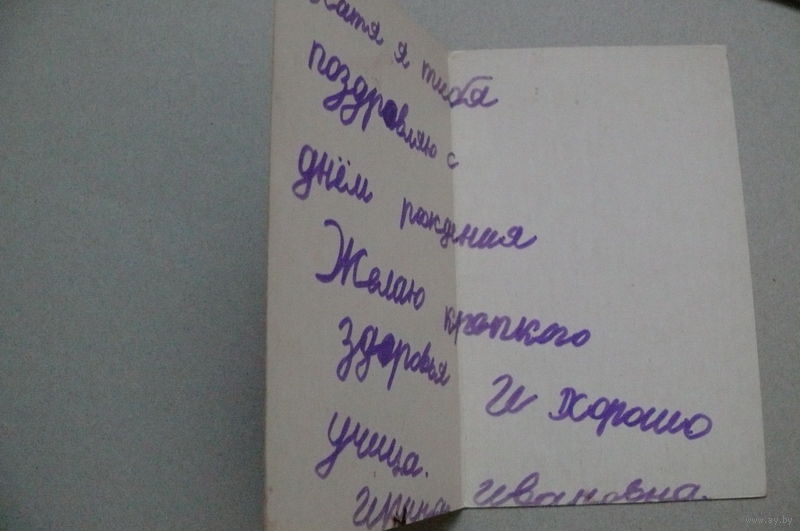 Катя я тибя
поздровляю с
днём рождения
Желаю кропкого
здоровья и хорошо
учица.
Ивановна.
www.ay.by